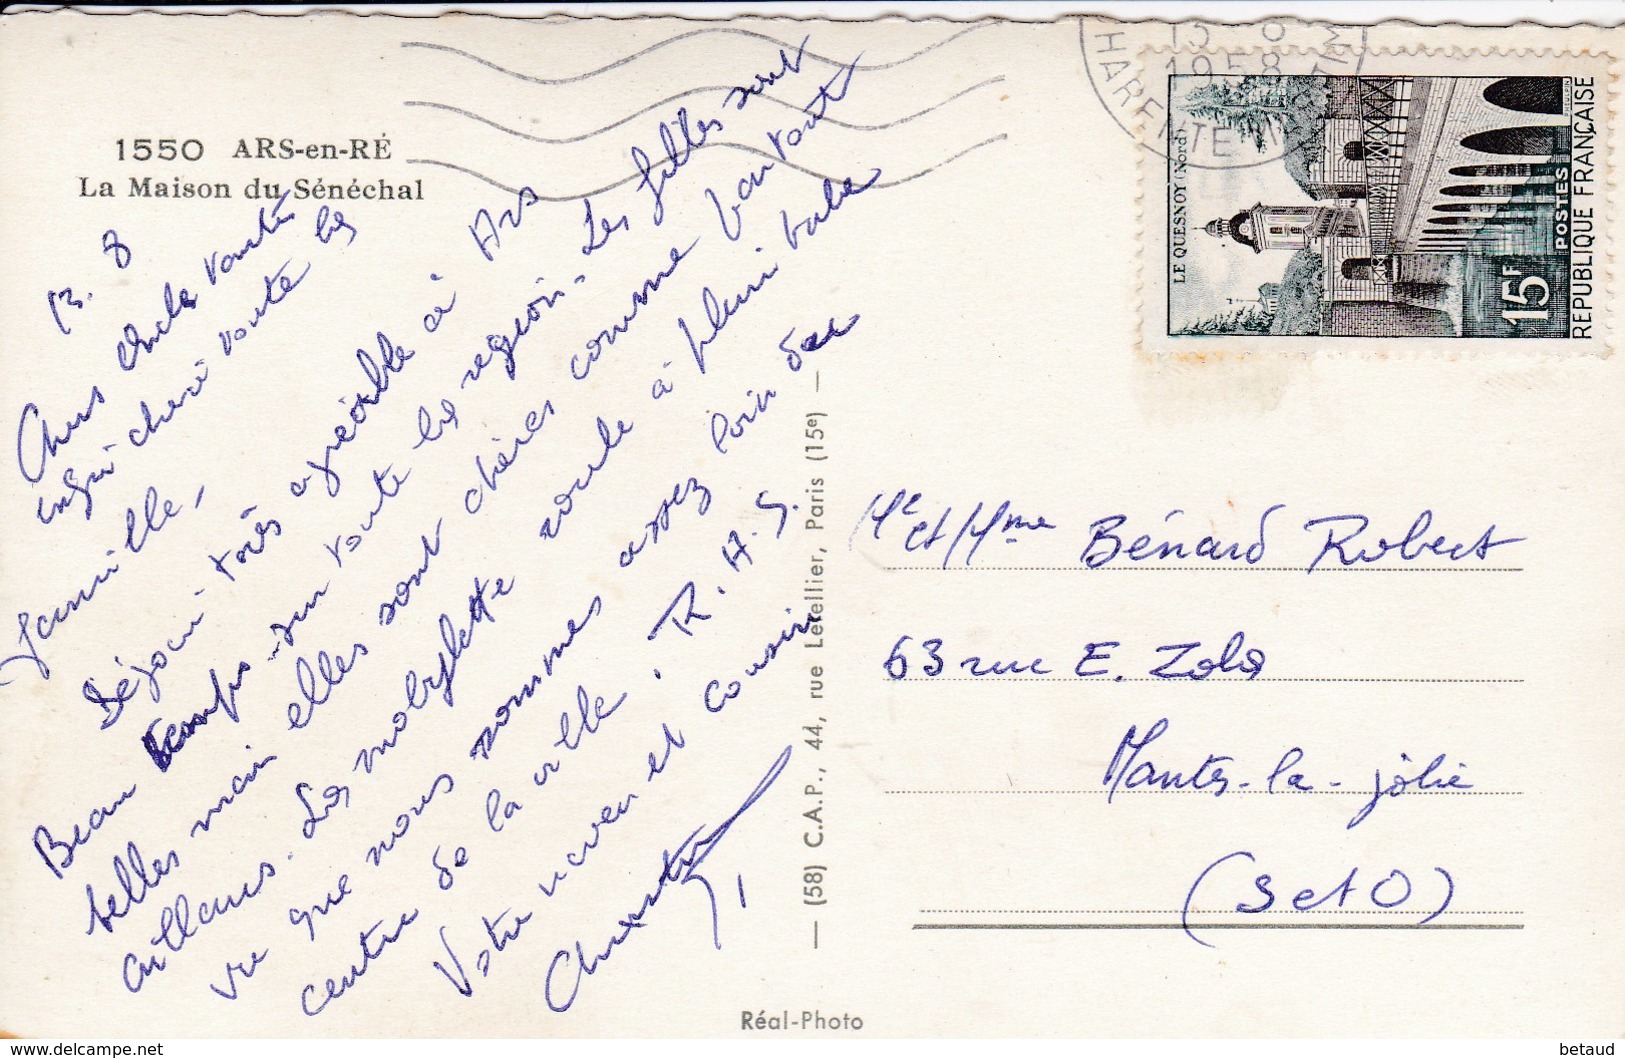 1550 ARS-en-RÉ
La Maison du Sénéchal
13. 8
Chers oncle tante
ainsi que toute la
famille,
Séjour très agréable à Ars
Beau temps sur toute la region. Les filles sont
belles mais elles sont chères comme partout
ailleurs. La mobylette roule à plein tube
vu que nous sommes assez loin du
centre de la ville. R. A. S.
Votre neveu et cousin
Christian
— (58) C.A.P., 44, rue Letellier, Paris (15e) —
Réal-Photo
13 - 8
1958
CHARENTE MARITIME
LE QUESNOY (Nord)
15F
POSTES
REPUBLIQUE FRANÇAISE
Mr et Mme Bénard Robert
63 rue E. Zola
Mantes-la-jolie
(S et O)
www.delcampe.net
betaud